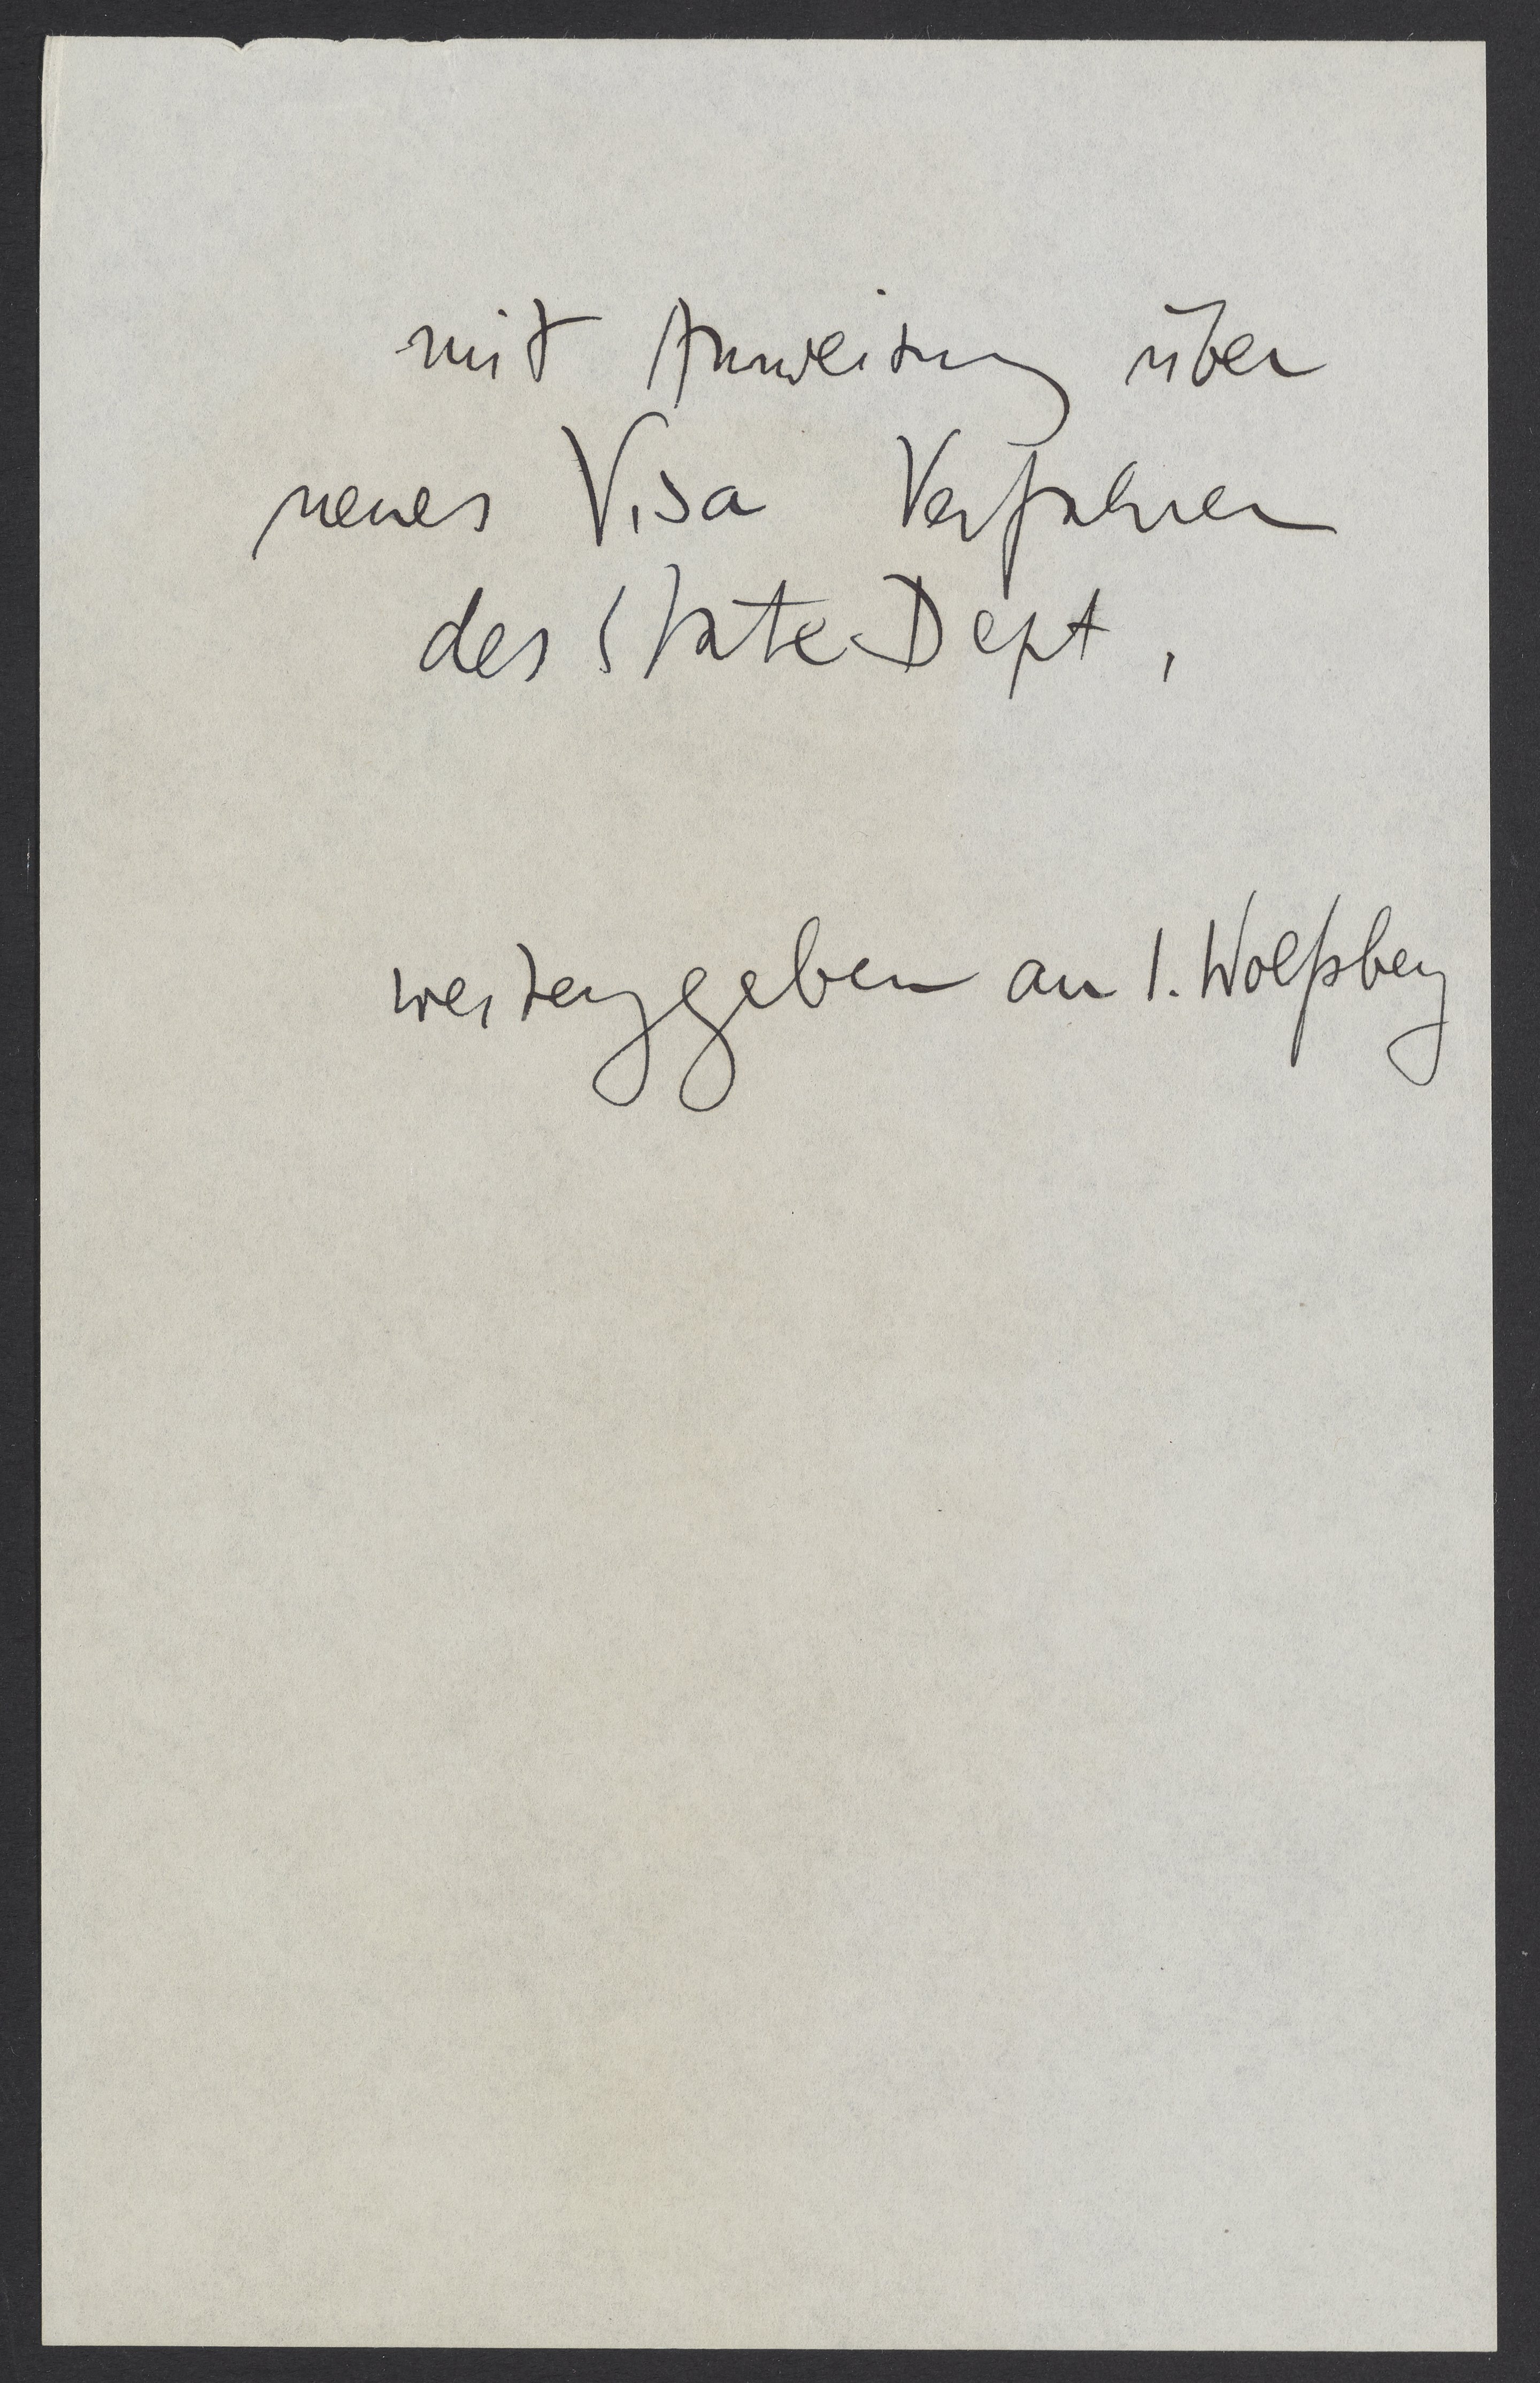 mit Anweisung über
neues Visa Verfahren
des State Dept.
weitergegeben an I. Wolfsberg